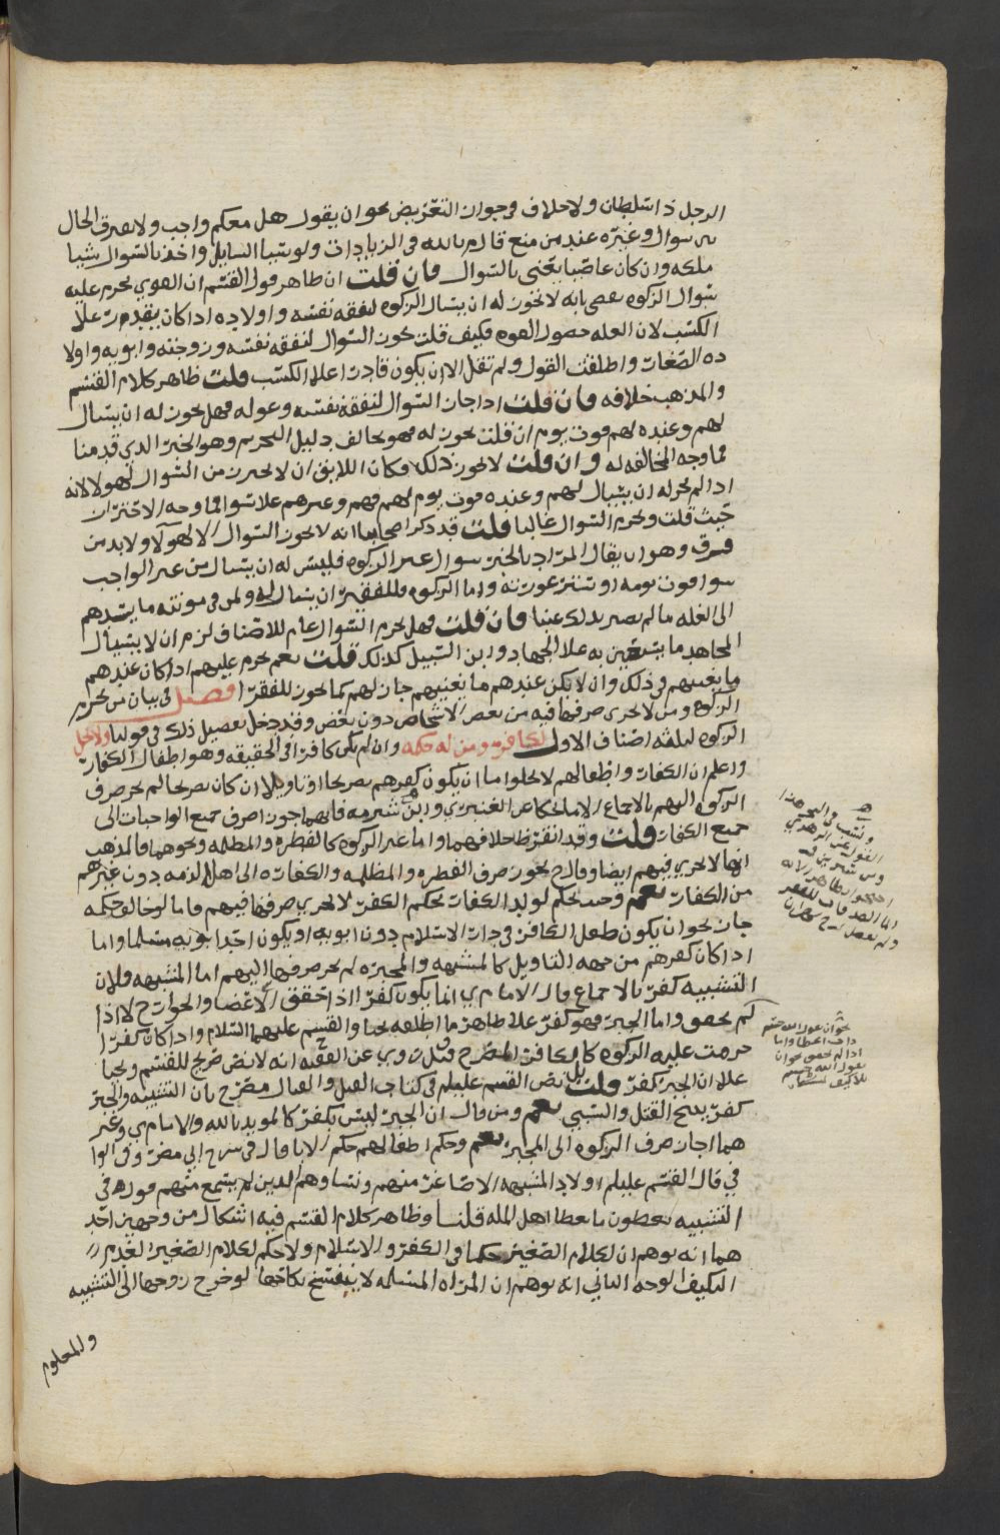 الرجل ذا سلطان ولا خلاف في جواز التعريض نحو ان يقول هل معكم واجب ولا يصرف الحال
سوال وغيره عند من منع قال م بالله في الزيادات ولو سال السايل واخذ بالسوال شيا
ملكه وان كان عاصيا يعني بالسوال فان قلت ان ظاهر قول القسم ان القوي يحرم عليه
سوال الزكوه يقضي بانه لا يجوز له ان يسال الزكوه لنفقة نفسه واولاده اذا كان يقدر علا
الكسب لان العله حصول القوه فكيف قلت يجوز السوال لنفقة نفسه وزوجته وابويه واولا
ده الصغار واطلقت القول ولم تقل الا ان يكون قادرا علا الكسب قلت ظاهر كلام القسم
والمذهب خلافه فان قلت اذا جاز السوال لنفقة نفسه وعوله فهل يجوز له ان يسال
لهم وعنده لهم قوت يوم ان قلت يجوز له فهو يخالف دليل التحريم وهو الخبر الذي قدمنا
فما وجه المخالفه له وان قلت لا يجوز ذلك فكان اللايق ان لا يحترز من السوال لهولا لانه
اذا لم يجز له ان يسال لهم وعنده قوت يوم لهم فهم وغيرهم علا سوا فما وجه الاحتراز
حيث قلت ويحرم السوال غالبا قلت قد ذكر اصحابنا انه لا يجوز السوال الا لهولآ ولا بد من
فرق وهو ان يقال المراد بالخبر سوال غير الزكوه فليس له ان يسال من غير الواجب
سوا قوت يومه او ستر عورته واما الزكوه فللفقير ان يسال له ولمن في مونته ما يسدهم
الى الغله ما لم يصر بذلك غنيا فان قلت فهل يحرم السوال عام للاصناف لزم ان لا يسال
المجاهد ما يستعين به علا الجهاد وابن السبيل كذلك قلت نعم يحرم عليهم اذا كان عندهم
ما يغنيهم في ذلك وان لا يكن عندهم ما يغنيهم جاز لهم كما يجوز للفقرا فصل في بيان من تحرم
الزكوه ومن لا يجزي صرفها فيه من بعض الاشخاص دون بعض وقد دخل تفصيل ذلك في قولنا ولا تحل
الزكوه لثلثه اصناف الاول لكافر ومن له حكمه وان لم يكن كافرا في الحقيقه وهو اطفال الكفار
واعلم ان الكفار واطفالهم لا يخلوا اما ان يكون كفرهم تصريحا او تاويلا ان كان تصريحا لم يجز صرف
الزكوه اليهم بالاجماع الا ما يحكا عن العنبري وابن شبرمه فانهما جوزا صرف جميع الواجبات الى
جميع الكفار قلت وقد انقرض خلافهما واما غير الزكوه كالفطره والمظلمه ونحوهما فالمذهب
انها لا تجزي فيهم ايضا وقال ح يجوز صرف الفطره والمظلمه والكفاره الى اهل الذمه دون غيرهم
من الكفار نعم وحيث يحكم لولد الكفار بحكم الكفر لا يجزي صرفها فيهم فاما لو خالف حكمه
جاز نحو ان يكون طفل الكافر في دار الاسلام دون ابويه او يكون احد ابويه مسلما واما
اذا كان كفرهم من جهه التاويل كالمشبهه والمجبره لم يجز صرفها اليهم اما المشبهه فلان
التشبيه كفر بالاجماع قال الامام ي انما يكون كفرا اذا حقق الاعضا والجوارح لا اذا
لم يحقق واما الجبر فهو كفر علا ظاهر ما اطلقه يحيا والقسم عليهما السلام واذا كان كفرا
حرمت عليه الزكوه كالكافر المصرح وقيل روي عن الفقيه انه لا نص صريح للقسم ويحيا
علا ان الجبر كفر قلت بل نص القسم عليلم في كتاب القتل والقتال مصرح بان التشبيه والجبر
كفر يبيح القتل والسبي نعم ومن قال ان الجبر ليس بكفر كالمويد بالله والامام ي وغير
هما اجاز صرف الزكوه الى المجبر نعم وحكم اطفالهم حكم الابا قال في شرح ابي مضر وفي الوا
في قال القسم عليلم اولاد المشبهه الاصاغر منهم ونساوهم الذين لم يسمع منهم قوله في
التشبيه يعطون ما يعطا اهل المله قلنا وظاهر كلام القسم فيه اشكال من وجهين احد
هما انه يوهم ان لكلام الصغير حكما في الكفر والاسلام ولا حكم لكلام الصغير لعدم
التكليف الوجه الثاني انه يوهم ان المراه المسلمه لا ينفسخ نكاحها لو خرج زوجها الى التشبيه
والمعلوم